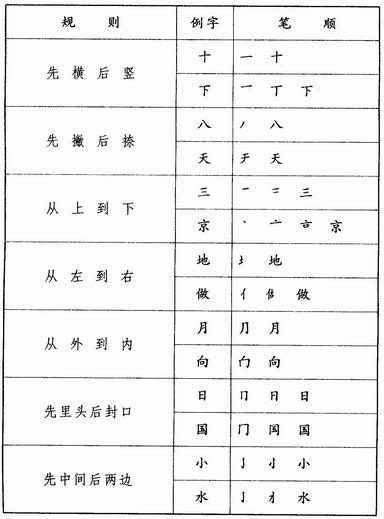 规 则 例字 笔 顺
先 横 后 竖
十 一 十
下 一 丁 下
先 撇 后 捺
八 丿 八
天 天
从 上 到 下
三 一 二 三
京 丶 亠 京
从 左 到 右
地 地
做 亻 估 做
从 外 到 内
月 月
向 向
先里头后封口
日 冂 日
国 冂 国
先中间后两边
小 亅 小
水 亅 水